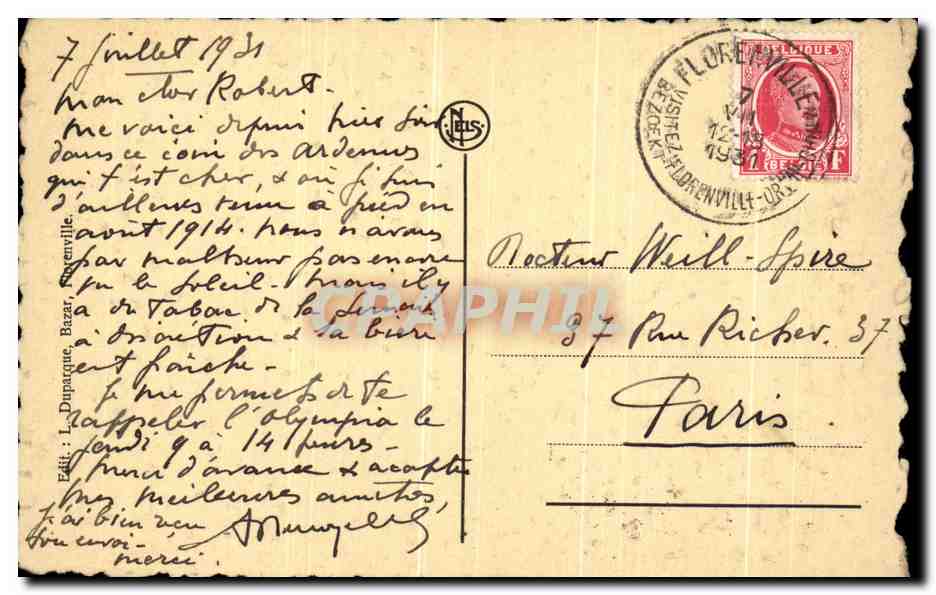 7 Juillet 1931
Mon cher Robert.
Me voici depuis hier soir
dans ce coin des Ardennes
qui t'est cher, & où je suis
d'ailleurs venu à pied en
août 1914. Nous n'avons
par malheur pas encore
vu le soleil. Mais il y
a du Tabac de la Semois
à discrétion & la bière
est fraîche.
Je me permets de te
rappeler l'Olympia le
jeudi 9 à 14 heures.
Merci d'avance & accepte
mes meilleures amitiés,
j'ai bien reçu
ton envoi.
merci.
Edit. : L. Duparque, Bazar, Florenville.
NELS
FLORENVILLE
7 VII
12-13
1931
VISITEZ FLORENVILLE-ORVAL
BEZOEKT
BELGIQUE
1 F
BELGIË
Docteur Weill-Spire
37 Rue Richer. 37
Paris
CPAPHIL